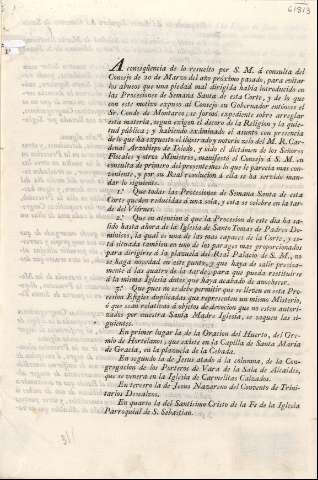 61813
A conseqüencia de lo resuelto por S. M. á consulta del
Consejo de 20 de Marzo del año próximo pasado, para evitar
los abusos que una piedad mal dirigida habia introducido en
las Procesiones de Semana Santa de esta Corte, y de lo que
con este motivo expuso al Consejo su Gobernador entónces el
Sr. Conde de Montarco; se formó expediente sobre arreglar
esta materia, segun exîgen el decoro de la Religion y la quie-
tud pública; y habiendo exâminado el asunto con presencia
de lo que ha expuesto el ilustrado y notorio zelo del M. R. Car-
denal Arzobispo de Toledo, y oido el dictámen de los Señores
Fiscales y otros Ministros, manifestó el Consejo á S. M. en
consulta de primero del presente mes lo que le parecia mas con-
veniente, y por su Real resolucion á ella se ha servido man-
dar lo siguiente.
1.º Que todas las Procesiones de Semana Santa de esta
Corte queden reducidas á una sola, y esta se celebre en la tar-
de del Viérnes.
2.º Que en atencion á que la Procesion de este dia ha sa-
lido hasta ahora de la Iglesia de Santo Tomas de Padres Do-
minicos, la qual es una de las mas capaces de la Corte, y es-
tá situada tambien en uno de los parages mas proporcionados
para dirigirse á la plazuela del Real Palacio de S. M., no
se haga novedad en este punto; y que haya de salir precisa-
mente á las quatro de la tarde, para que pueda restituirse
á la misma Iglesia ántes que haya acabado de anochecer.
3.º Que pues no se debe permitir que se lleven en esta Pro-
cesion Efigies duplicadas que representen un mismo Misterio,
ó que sean relativas á objetos de devocion que no esten auto-
rizados por nuestra Santa Madre Iglesia, se saquen las si-
guientes.
En primer lugar la de la Oracion del Huerto, del Gre-
mio de Hortelanos, que exîste en la Capilla de Santa María
de Gracia, en la plazuela de la Cebada.
En segundo la de Jesus atado á la columna, de la Con-
gregacion de los Porteros de Vara de la Sala de Alcaldes,
que se venera en la Iglesia de Carmelitas Calzados.
En tercero la de Jesus Nazareno del Convento de Trini-
tarios Descalzos.
En quarto la del Santísimo Cristo de la Fe de la Iglesia
Parroquial de S. Sebastian.